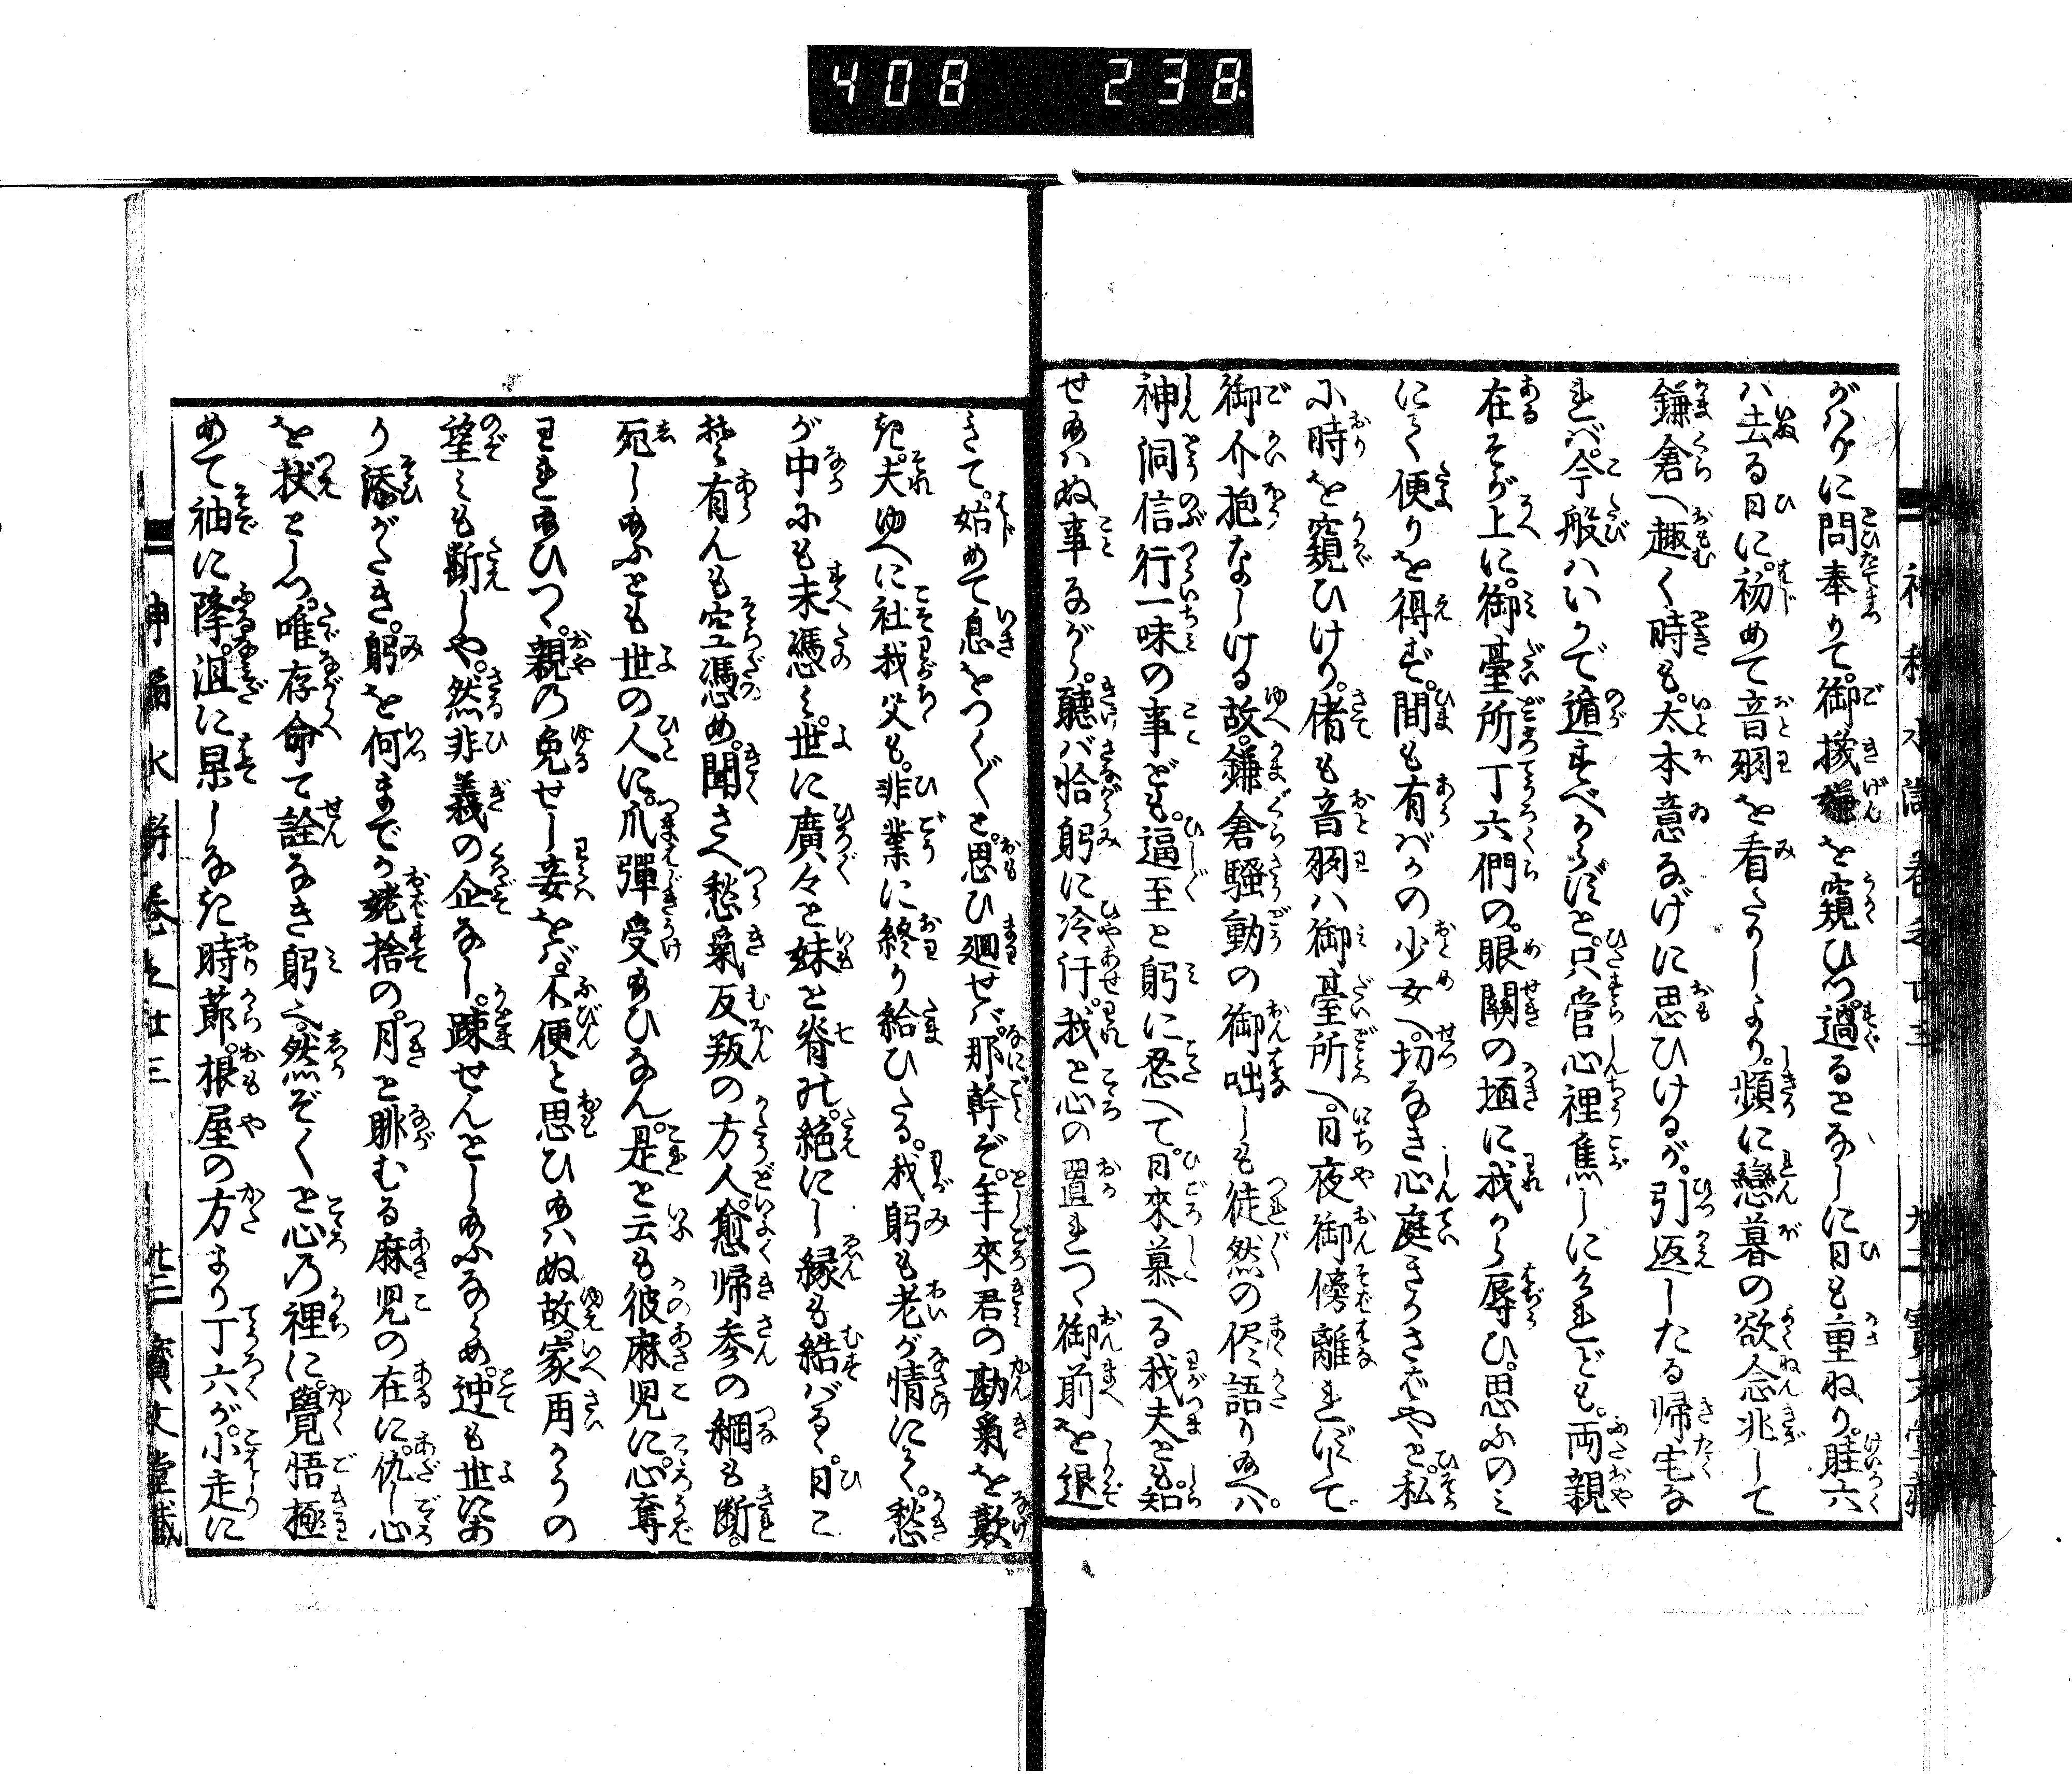 408 238
がはりに問奉りて。御機嫌を窺ひつ。過るとなしに日も重ねり。眭六
ハ去る日に。初めて音羽を看たりしより。頻に戀暮の欲念兆して
鎌倉へ趣く時も。太本意なげに思ひけるが。引返したる帰宅な
れバ。今般ハいかで遁すべからずと。只管心裡焦しにけれども。両親
在そが上に。御臺所丁六們の。眼關の垣に我から辱ひ。思ふのミ
にて便りを得ず。間も有バかの少女へ。切なき心庭きかさばやと。私
に時を窺ひけり。偖も音羽ハ御臺所へ。日夜御傍離れずして
御介抱なしける故。鎌倉騒動の御咄しも徒然の侭語り給へバ。
神洞信行一味の事ども。逼至と躬に忍へて。日來慕へる我夫とも知
せ給ハぬ事ながら。聽バ恰躬に冷汗。我と心の置れつゝ御前を退
きて。始めて息をつく〲と。思ひ廻せバ。那幹ぞ。年來君の勘氣を歎
き。夫ゆへに社我父も。非業に終り給ひたる。我躬も老が情にて。愁
が中にも末憑ミ。世に廣々と妹と脊の。絶にし縁も結バるゝ。日こ
そ有んも空憑め。聞さへ愁氣反叛の方人。愈帰参の綱も断。
死し給ふとも世の人に。爪弾受給ひなん。是と云も彼麻児に。心奪
われ給ひつゝ。親の免せし妾をバ。不便と思ひ給ハぬ故。家再かうの
望ミも断しや。然非義の企なし。疎せんとし給ふならめ。迚も世にあ
り添がたき。躬を何まで歟姥捨の。月と眺むる麻児の在に。仇し心
を杖としつ。唯存命て詮なき躬へ。然ぞくと心の裡に。覺悟極
めて袖に降。泪に果しなき時節。根屋の方より丁六が。小走に
神稲水滸傳巻之廿三 廿二 寳文堂藏